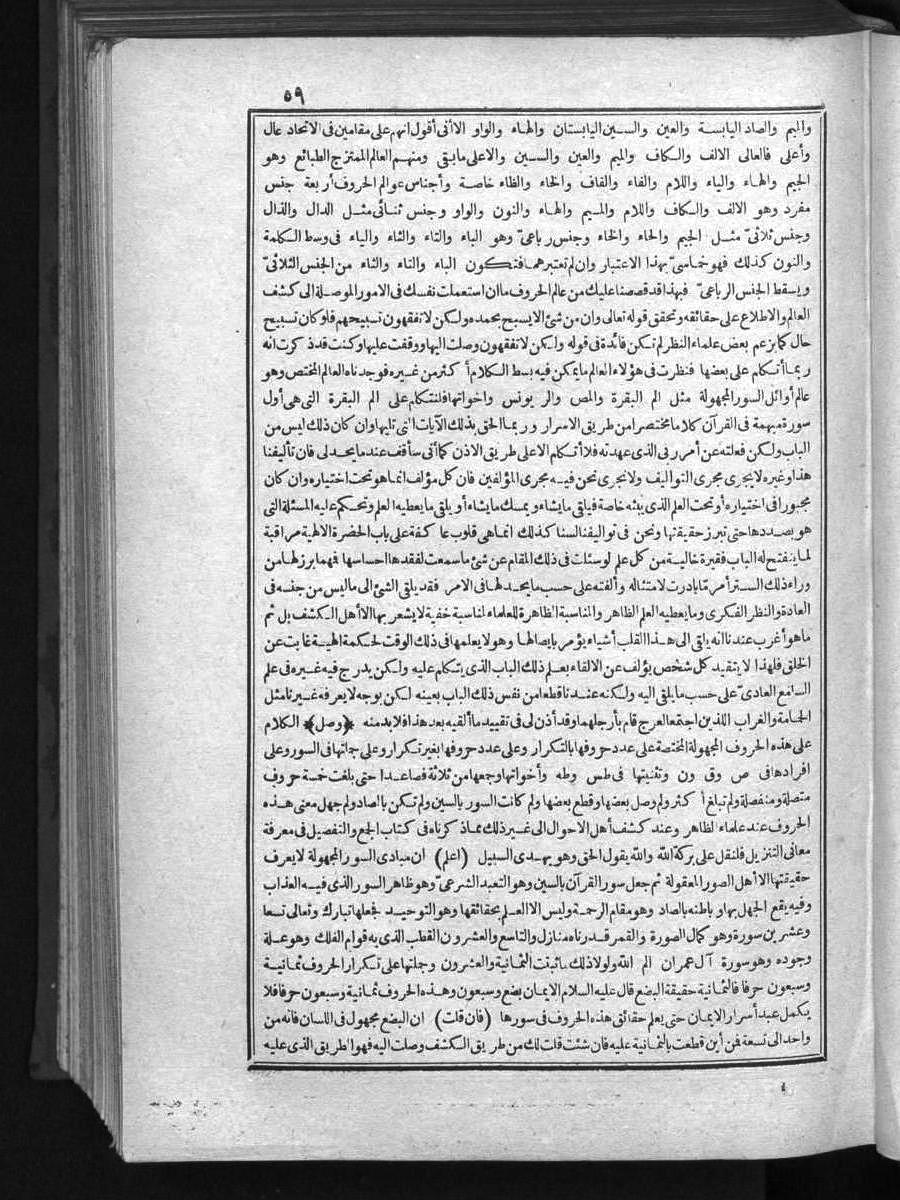 ٥٩
والميم والصاد اليابسة والعين والسين اليابستان والهاء والواو الأنى أقول انهم على مقامين فى الاتحاد عال
وأعلى فالعالى الالف والكاف والميم والعين والسين والاعلى مابقى ومنهم العالم الممتزج الطبائع وهو
الجيم والهاء والياء واللام والفاء والقاف والخاء والظاء خاصة وأجناس عوالم الحروف أربعة جنس
مفرد وهو الالف والكاف واللام والميم والهاء والنون والواو وجنس ثنائى مثل الدال والذال
وجنس ثلاثىّ مثل الجيم والحاء والخاء وجنس رباعىّ وهو الباء والتاء والثاء والياء فى وسط الكلمة
والنون كذلك فهو خماسىّ بهذا الاعتبار وان لم تعتبرهما فتكون الباء والتاء والثاء من الجنس الثلاثىّ
ويسقط الجنس الرباعىّ فبهذا قد قصصنا عليك من عالم الحروف ما ان استعملت نفسك فى الامور الموصلة الى كشف
العالم والاطلاع على حقائقه وتحقق قوله تعالى وان من شئ الا يسبح بحمده ولكن لا تفقهون تسبيحهم فلو كان تسبيح
حال كما يزعم بعض علماء النظر لم تكن فائدة فى قوله ولكن لا تفقهون وصلت اليها ووقفت عليها وكنت قد ذكرت انه
ربما أتكلم على بعضها فنظرت فى هؤلاء العالم ما يمكن فيه بسط الكلام أكثر من غيره فوجدناه العالم المختص وهو
عالم أوائل السور المجهولة مثل الم البقرة والمص والر يونس واخواتها فلنتكلم على الم البقرة التى هى أول
سورة مبهمة فى القرآن كلاما مختصرا من طريق الاسرار وربما الحق بذلك الآيات التى تليها وان كان ذلك ليس من
الباب ولكن فعلته عن أمر ربى الذى عهدته فلا أتكلم الا على طريق الاذن كما أنى سأقف عند ما يحد لى فان تأليفنا
هذا وغيره لا يجرى مجرى التواليف ولا نجرى نحن فيه مجرى المؤلفين فان كل مؤلف انما هو تحت اختياره وان كان
مجبورا فى اختياره أو تحت العلم الذى يبثه خاصة فيلقى ما يشاء ويمسك ما يشاء أو يلقى ما يعطيه العلم وتحكم عليه المسئلة التى
هو بصددها حتى تبرز حقيقتها ونحن فى تواليفنا لسنا كذلك انما هى قلوب عاكفة على باب الحضرة الالهية مراقبة
لما ينفتح له الباب فقيرة خالية من كل علم لو سئلت فى ذلك المقام عن شئ ما سمعت لفقدها احساسها فمهما برز لها من
وراء ذلك الستر أمر ما بادرت لامتثاله وألفته على حسب ما يحد لها فى الامر فقد يلقى الشئ الى ما ليس من جنسه فى
العادة والنظر الفكرى وما يعطيه العلم الظاهر والمناسبة الظاهرة للعلماء لمناسبة خفية لا يشعر بها الا أهل الكشف بل ثم
ما هو أغرب عندنا انه يلقى الى هذا القلب أشياء يؤمر بايصالها وهو لا يعلمها فى ذلك الوقت لحكمة الهية غابت عن
الخلق فلهذا لا يتقيد كل شخص يؤلف عن الالقاء بعلم ذلك الباب الذى يتكلم عليه ولكن يدرج فيه غيره فى علم
السامع العادىّ على حسب ما يلقى اليه ولكنه عندنا قطعا من نفس ذلك الباب بعينه لكن بوجه لا يعرفه غيرنا مثل
الحمامة والغراب اللذين اجتمعا لعرج قام بأرجلهما وقد أذن لى فى تقييد ما ألقيه بعد هذا فلا بد منه ﴿وصل﴾ الكلام
على هذه الحروف المجهولة المختصة على عدد حروفها بالتكرار وعلى عدد حروفها بغير تكرار وعلى جملتها فى السور وعلى
افرادها فى ص وق ون وتثنيتها فى طس وطه وأخواتها وجمعها من ثلاثة فصاعدا حتى بلغت خمسة حروف
متصلة ومنفصلة ولم تبلغ أكثر ولم وصل بعضها وقطع بعضها ولم كانت السور بالسين ولم تكن بالصاد ولم جهل معنى هذه
الحروف عند علماء الظاهر وعند كشف أهل الاحوال الى غير ذلك مما ذكرناه فى كتاب الجمع والتفصيل فى معرفة
معانى التنزيل فلنقل على بركة الله والله يقول الحق وهو يهدى السبيل (اعلم) ان مبادى السور المجهولة لا يعرف
حقيقتها الا أهل الصور المعقولة ثم جعل سور القرآن بالسين وهو التعبد الشرعىّ وهو ظاهر السور الذى فيه العذاب
وفيه يقع الجهل بها وباطنه بالصاد وهو مقام الرحمة وليس الا العلم بحقائقها وهو التوحيد فجعلها تبارك وتعالى تسعا
وعشرين سورة وهو كمال الصورة والقمر قدرناه منازل والتاسع والعشرون القطب الذى به قوام الفلك وهو علة
وجوده وهو سورة آل عمران الم الله ولولا ذلك ما ثبتت الثمانية والعشرون وجملتها على تكرار الحروف ثمانية
وسبعون حرفا فالثمانية حقيقة البضع قال عليه السلام الايمان بضع وسبعون وهذه الحروف ثمانية وسبعون حرفا فلا
يكمل عبد أسرار الايمان حتى يعلم حقائق هذه الحروف فى سورها (فان قلت) ان البضع مجهول فى اللسان فانه من
واحد الى تسعة فمن أين قطعت بالثمانية عليه فان شئت قلت لك من طريق الكشف وصلت اليه فهو الطريق الذى عليه